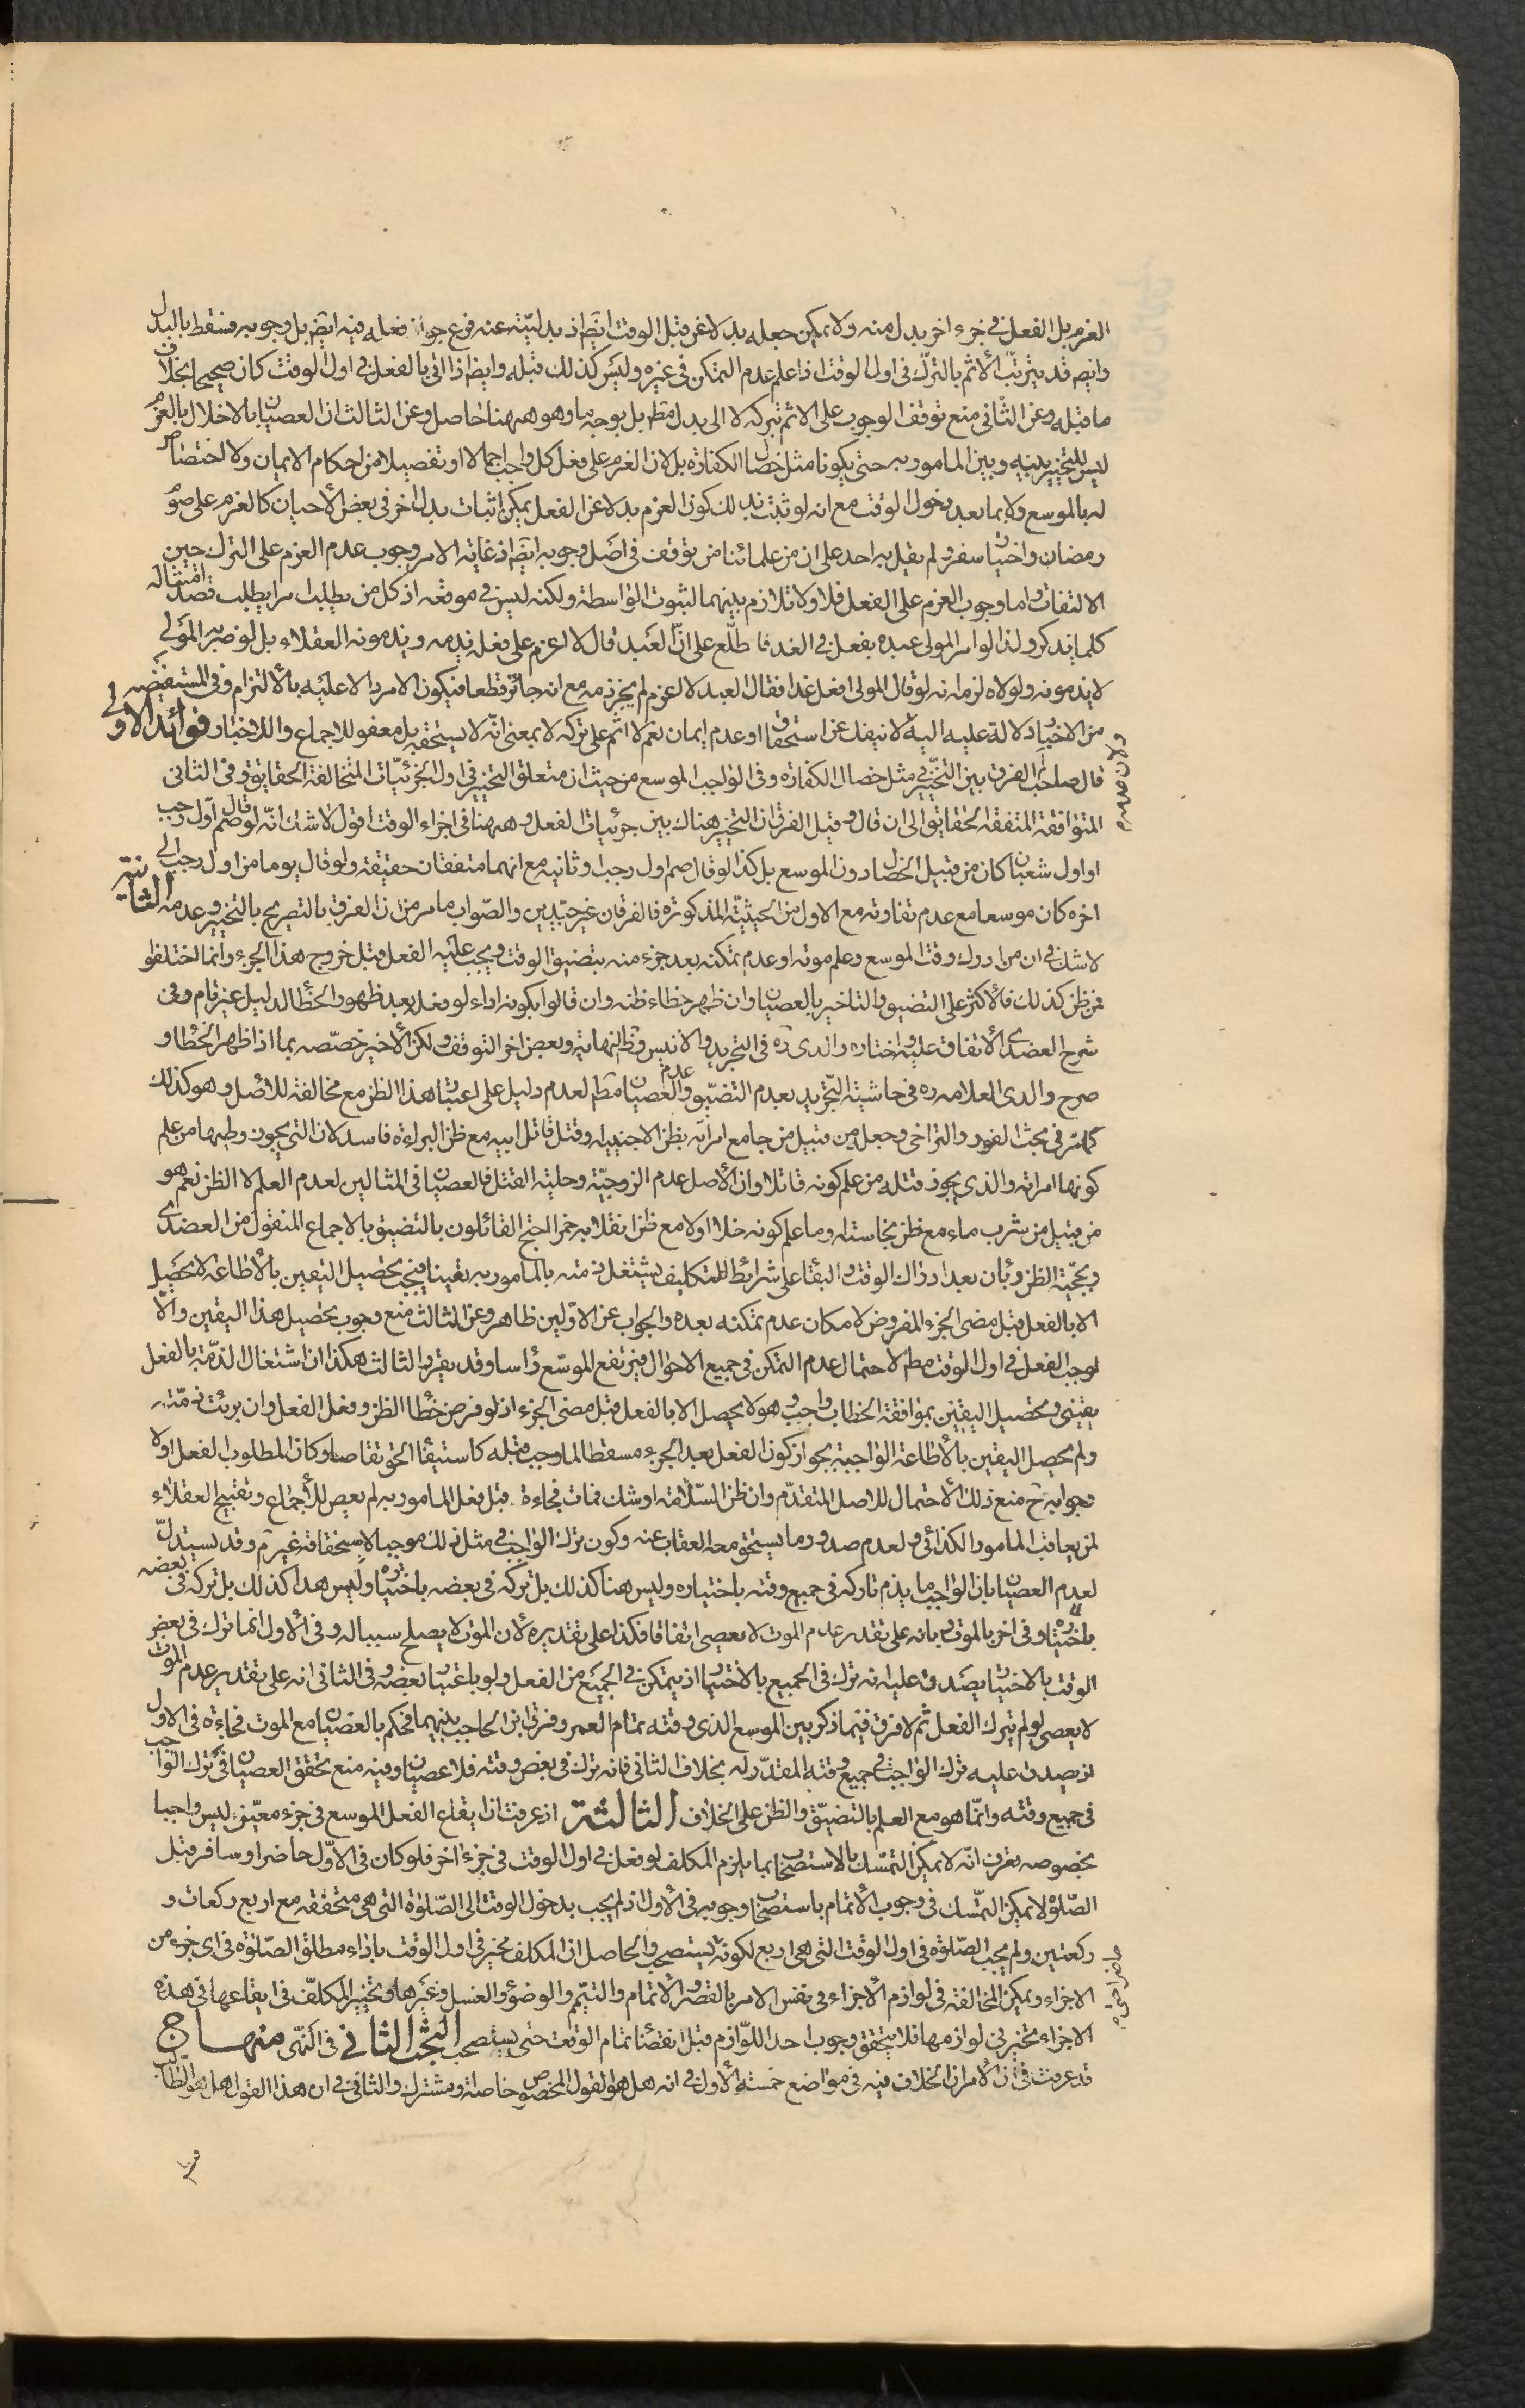 العزم بل الفعل فى جزء اخر بدل منه ولا يمكن جعله بدلا عن قبل الوقت ايضا اذ بدليته عنه فرع جواز فعله فيه ايضا بل وجوبه فسقط بالبدل
وايضا قد يترتب الأثم بالترك فى اول الوقت اذا علم عدم التمكن فى غيره وليس كذلك قبله وايضا اذا اتى بالفعل فى اول الوقت كان صحيحا بخلاف
ما قبله وعن الثانى منع توقف الوجوب على الاثم بتركه لا الى بدل مط بل بوجه ما وهو ههنا حاصل وعن الثالث ان العصيان بالاخلال بالعزم
ليس للتخيير بينه وبين المامور به حتى يكونا مثل خصال الكفارة بل لان العزم على فعل كل واجب اجمالا او تفصيلا من احكام الايمان ولا اختصاص
له بالموسع ولا بما بعد دخول الوقت مع انه لو ثبت بذلك كون العزم بدلا عن الفعل يمكن اثبات بدل اخر فى بعض الأحيان كالعزم على صوم
رمضان واختيار سفر ولم يقل به احد على ان من علمائنا من توقف فى اصل وجوبه ايضا اذ غاية الامر وجوب عدم العزم على الترك حين
الالتفات واما وجوب العزم على الفعل فلا ولا تلازم بينهما لثبوت الواسطة ولكنه ليس فى موقعه اذ كل من يطلب امرا يطلب قصد امتثاله
كلما يذكر ولذا لو امر المولى عبده بفعل فى الغد فاطلع على ان العبد قال لا اعزم على فعله يذمه ويذمونه العقلاء بل لو ضربه المولى
لا يذمونه ولولاه لزم انه لو قال المولى افعل غدا فقال العبد لا اعزم لم يجز ذمه مع انه جائز قطعا فيكون الامر دالا عليه بالألتزام وفى المستفيضه
من الاخبار دلالة عليه البتة لا نيفك عن استحقاق او عدم ايمان نعم لا اثم على تركه لا بمعنى انه لا يستحقه بل معفو للاجماع والاخبار فوائد الاولى
قال صاحب الفرق بين التخيير فى مثل خصال الكفارة وفى الواجب الموسع من حيث ان متعلق التخيير فى اول الجزئيات المتخالفة الحقايق وفى الثانى
المتوافقة المتفقة الحقايق الى ان قال وقيل الفرق ان التخيير هناك بين جزئيات لفعل وههنا فى اجزاء الوقت اقول لا شك انه لو قال صم اول رجب
او اول شعبان كان من قبيل الخصال دون الموسع بل كذا لو قال صم اول رجب او ثانيه مع انهما متفقان حقيقة ولو قال يوما من اول رجب الى
اخره كان موسعا مع عدم تفاوته مع الاول من الحيثية المذكورة فالفرقان غير جيدين والصواب ما مر من ان الفرق بالتصريح بالتخيير وعدمه الثانية
لا شك فى ان من ادرك وقت الموسع وعلم موته او عدم تمكنه بعد جزء منه يتضيق الوقت ويجب عليه الفعل قبل خروج هذا الجزء وانما اختلفوا
فمن ظن كذلك فالأكثر على التضيق والتاخير بالعصيان وان ظهر خطاء ظنه وان قالوا بكونه اداء لو فعل بعد ظهور الخطأ لدليل غير تام وفى
شرح العضدى الأتفاق عليه واختاره والدى ره فى التجريد والانيس وظ النهاية وبعض اخر التوقف ولكن الأخير خصصه بما اذا ظهر الخطأ و
صرح والدى العلامه ره فى حاشية التجريد بعدم التضيق وعدم العصيان مط لعدم دليل على اعتبار هذا الظن مع مخالفته للاصل وهو كذلك
كما مر فى بحث الفور والتراخى وجعله من قبيل من جامع امراته بظن الاجنبية او قتل قاتل ابيه مع ظن البراءة فاسد لان التى يجوز وطيها من علم
كونها امراته والذى يجوز قتله من علم كونه قاتلا وان الأصل عدم الزوجية وحلية القتل فالعصيان فى المثالين لعدم العلم لا الظن نعم هو
من قبيل من شرب ماء مع ظن نجاسته او ما علم كونه خلا اولا مع ظن انقلابه خمرا احتج القائلون بالتضيق بالاجماع المنقول من العضدى
وبحجية الظن وبان بعد ادراك الوقت والبقاء على شرائط التكليف يشتغل ذمته بالمامور به يقينا فيجب تحصيل اليقين بالأطاعة لا يحصل
الا بالفعل قبل مضى الجزء المفروض لامكان عدم تمكنه بعده والجواب عن الاولين ظاهر وعن الثالث منع وجوب تحصيل هذا اليقين والا
لوجب الفعل فى اول الوقت مط لاحتمال عدم التمكن فى جميع الاحوال فيرتفع الموسع رأسا وقد يقرر الثالث هكذا ان اشتغال الذمة بالفعل
يقينى وتحصيل اليقين بموافقة الخطاب واجب وهو لا يحصل الا بالفعل قبل مضى الجزء اذ لو فرض خطأ الظن وفعل الفعل وان برئت ذمته
ولم يحصل اليقين بالأطاعة الواجبة بجواز كون الفعل بعد الجزء مسقطا لما وجب قبله كاستيفاء الحق تقاصا وكان المطلوب الفعل اولا
وجوابه ح منع ذلك الأحتمال للاصل المتقدم وان ظن السلامة او شك فمات فجاءة قبل فعل المامور به لم يعص للأجماع وتقبيح العقلاء
لمن يعاقب المامور الكذائى ولعدم صدور ما يستحق معه العقاب عنه وكون ترك الواجب فى مثل ذلك موجبا لاستحقاقه غير م وقد يستدل
لعدم العصيان بان الواجب ما يذم تاركه فى جميع وقته باختياره وليس هنا كذلك بل تركه فى بعضه باختياره وليس هذا كذلك بل تركه فى بعضه
باختياره وفى اخر بالموت وبانه على تقدير عدم الموت لا يعصى اتفاقا فكذا على تقديره لأن الموت لا يصلح سببا له وفى الأول انما ترك فى بعض
الوقت بالاختيار يصدق عليه انه ترك فى الجميع بالاختيار اذ يتمكن فى الجميع من الفعل ولو باعتبار بعضه وفى الثانى انه على تقدير عدم الموت
لا يعصى لو لم يترك الفعل ثم لا فرق فيما ذكر بين الموسع الذى وقته تمام العمر وفرق ابن الحاجب بينهما فحكم بالعصيان مع الموت فجاءة فى الاول
اذ يصدق عليه ترك الواجب فى جميع وقته المقدر له بخلاف الثانى فانه ترك فى بعض وقته فلا عصيان وفيه منع تحقق العصيان فى ترك الواجب
فى جميع وقته وانما هو مع العلم بالتضيق والظن على الخلاف الثالثة اذ عرفت ان ايقاع الفعل الموسع فى جزء معين ليس واجبا
بخصوصه تعرف انه لا يمكن التمسك بالاستصحاب بما يلزم المكلف لو فعل فى اول الوقت فى جزء اخر فلو كان فى الاول حاضرا وسافر قبل
الصلوة لا يمكن التمسك فى وجوب الأتمام باستصحاب وجوبه فى الأول اذ لم يجب بدخول الوقت الى الصلوة التى هى متحققه مع اربع ركعات و
ركعتين ولم يجب الصلوة فى اول الوقت التى هى اربع لكونه يستصحب والحاصل ان المكلف مخير فى اول الوقت باداء مطلق الصلوة فى اى جزء من
الاجزاء ويمكن المخالفة فى لوازم الأجزاء فى نفس الامر بالقصر والأتمام والتيمم والوضوء والغسل وغيرها وتخيير المكلف فى ايقاعها فى هذه
الاجزاء تخيير فى لوازمها فلا يتحقق وجوب احد اللوازم قبل انقضاء تمام الوقت حتى يستصحب البحث الثانى فى النهى منهاج
قد عرفت فى ان الامر ان الخلاف فيه فى مواضع خمسة الأول فى انه هل هو القول المخصوص خاصة او مشترك والثانى فى ان هذا القول هل هو الطلب